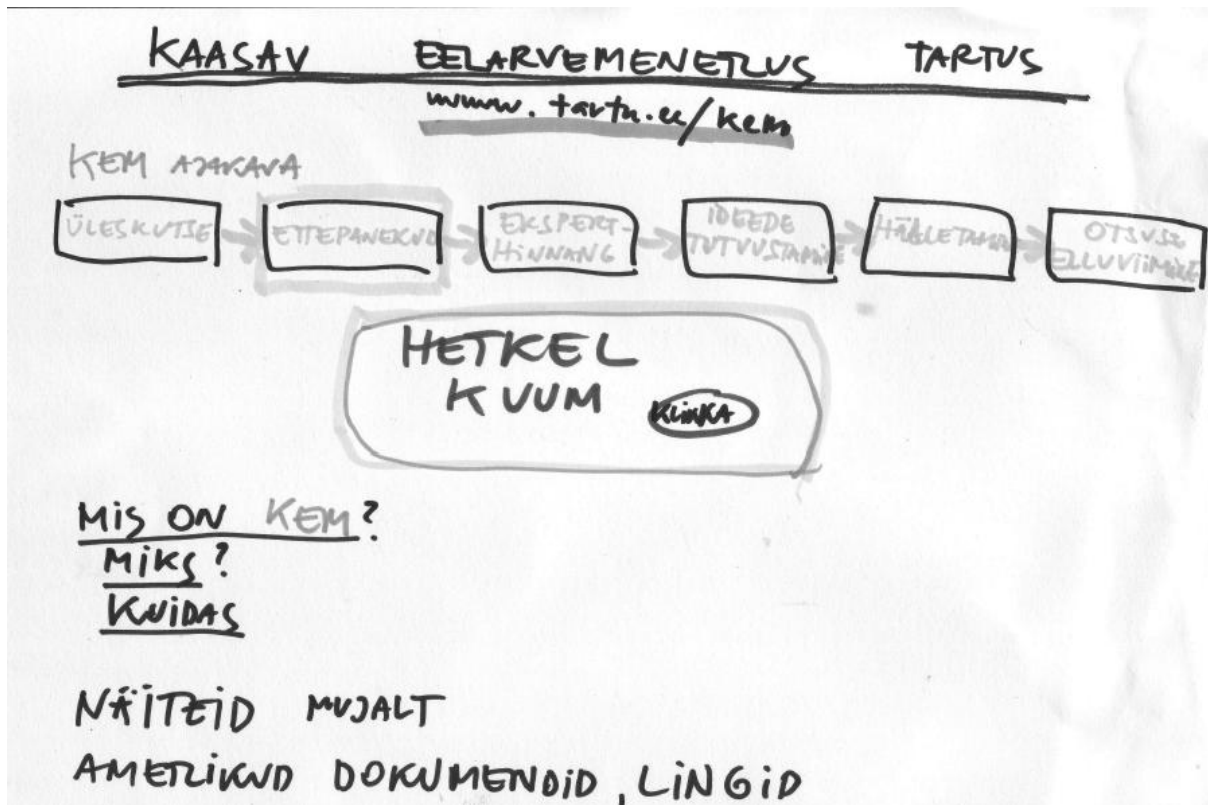 KAASAV EELARVEMENETLUS TARTUS
www.tartu.ee/kem
KEM AJAKAVA
ÜLESKUTSE ETTEPANEKUD EKSPERT- IDEEDE HÄÄLETAMINE OTSUSE
HINNANG TUTVUSTAMINE ELLUVIIMINE
HETKEL
KUUM KLIKKA
MIS ON KEM?
MIKS?
KUIDAS
NÄITEID MUJALT
AMETLIKUD DOKUMENDID, LINGID